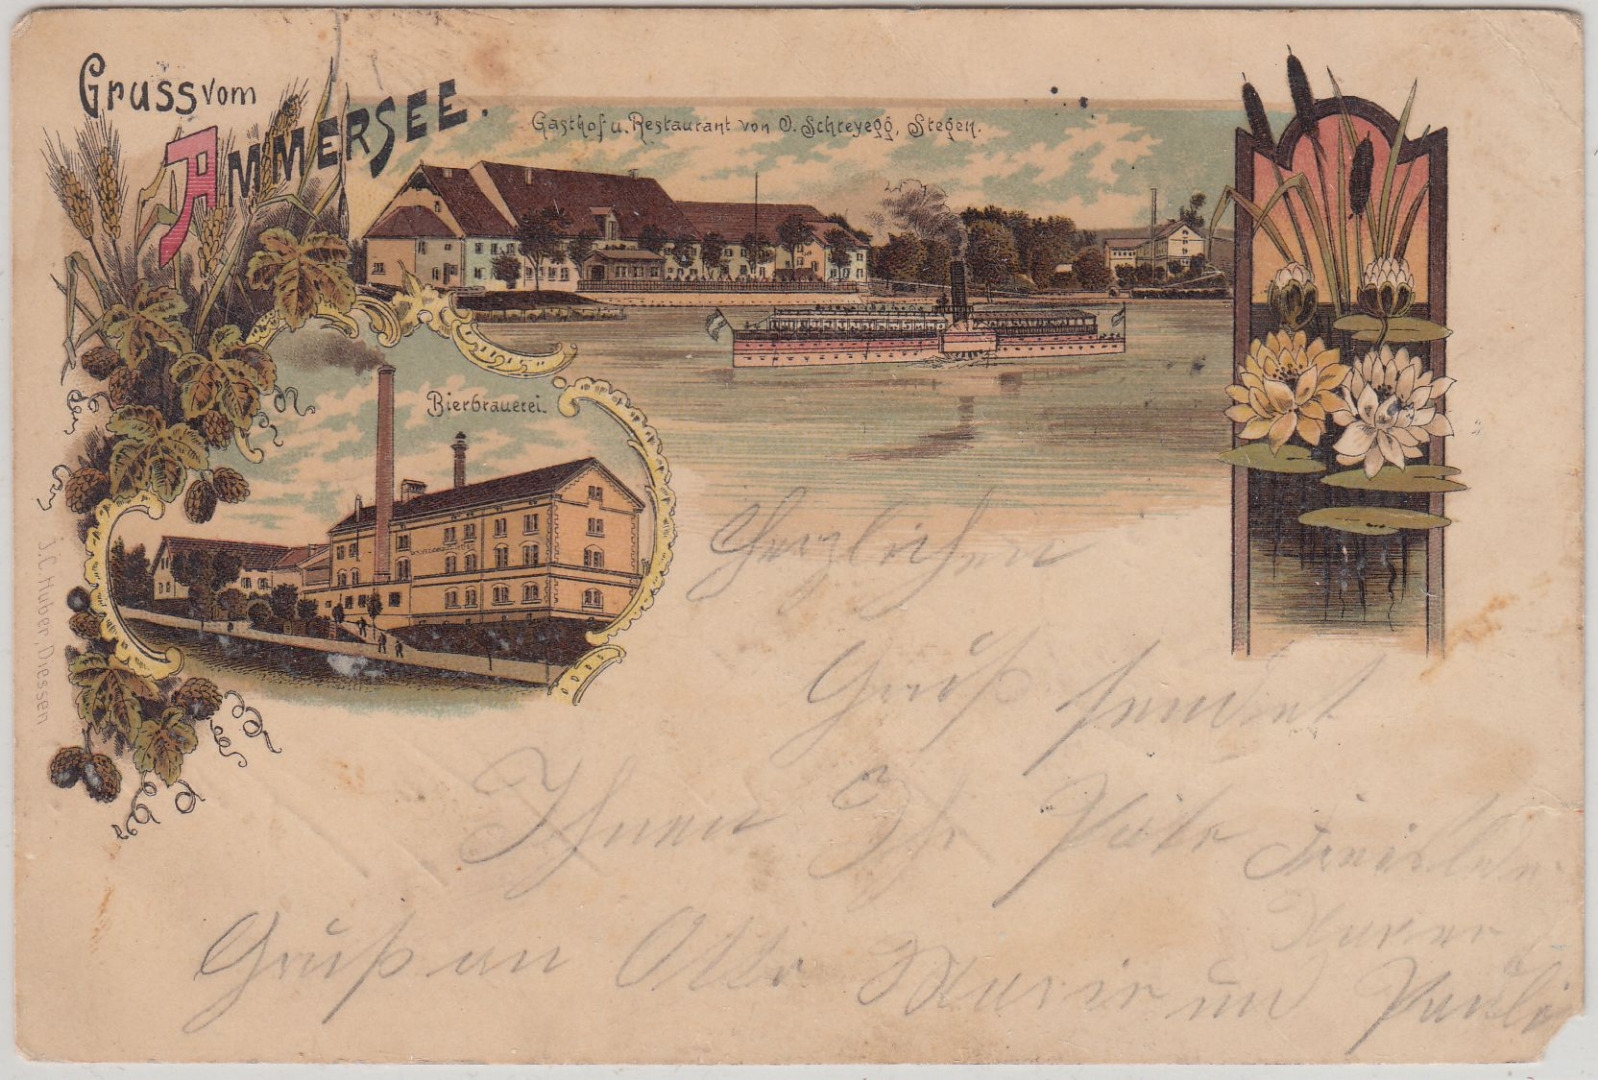 Gruss vom
AMMERSEE.
Gasthof u. Restaurant von O. Schreyegg, Stegen.
Bierbrauerei.
J. C. Huber, Diessen
Herzlichen
Gruß sendet
Ihnen Ihr
Gruß an Otto Marie und Pauli